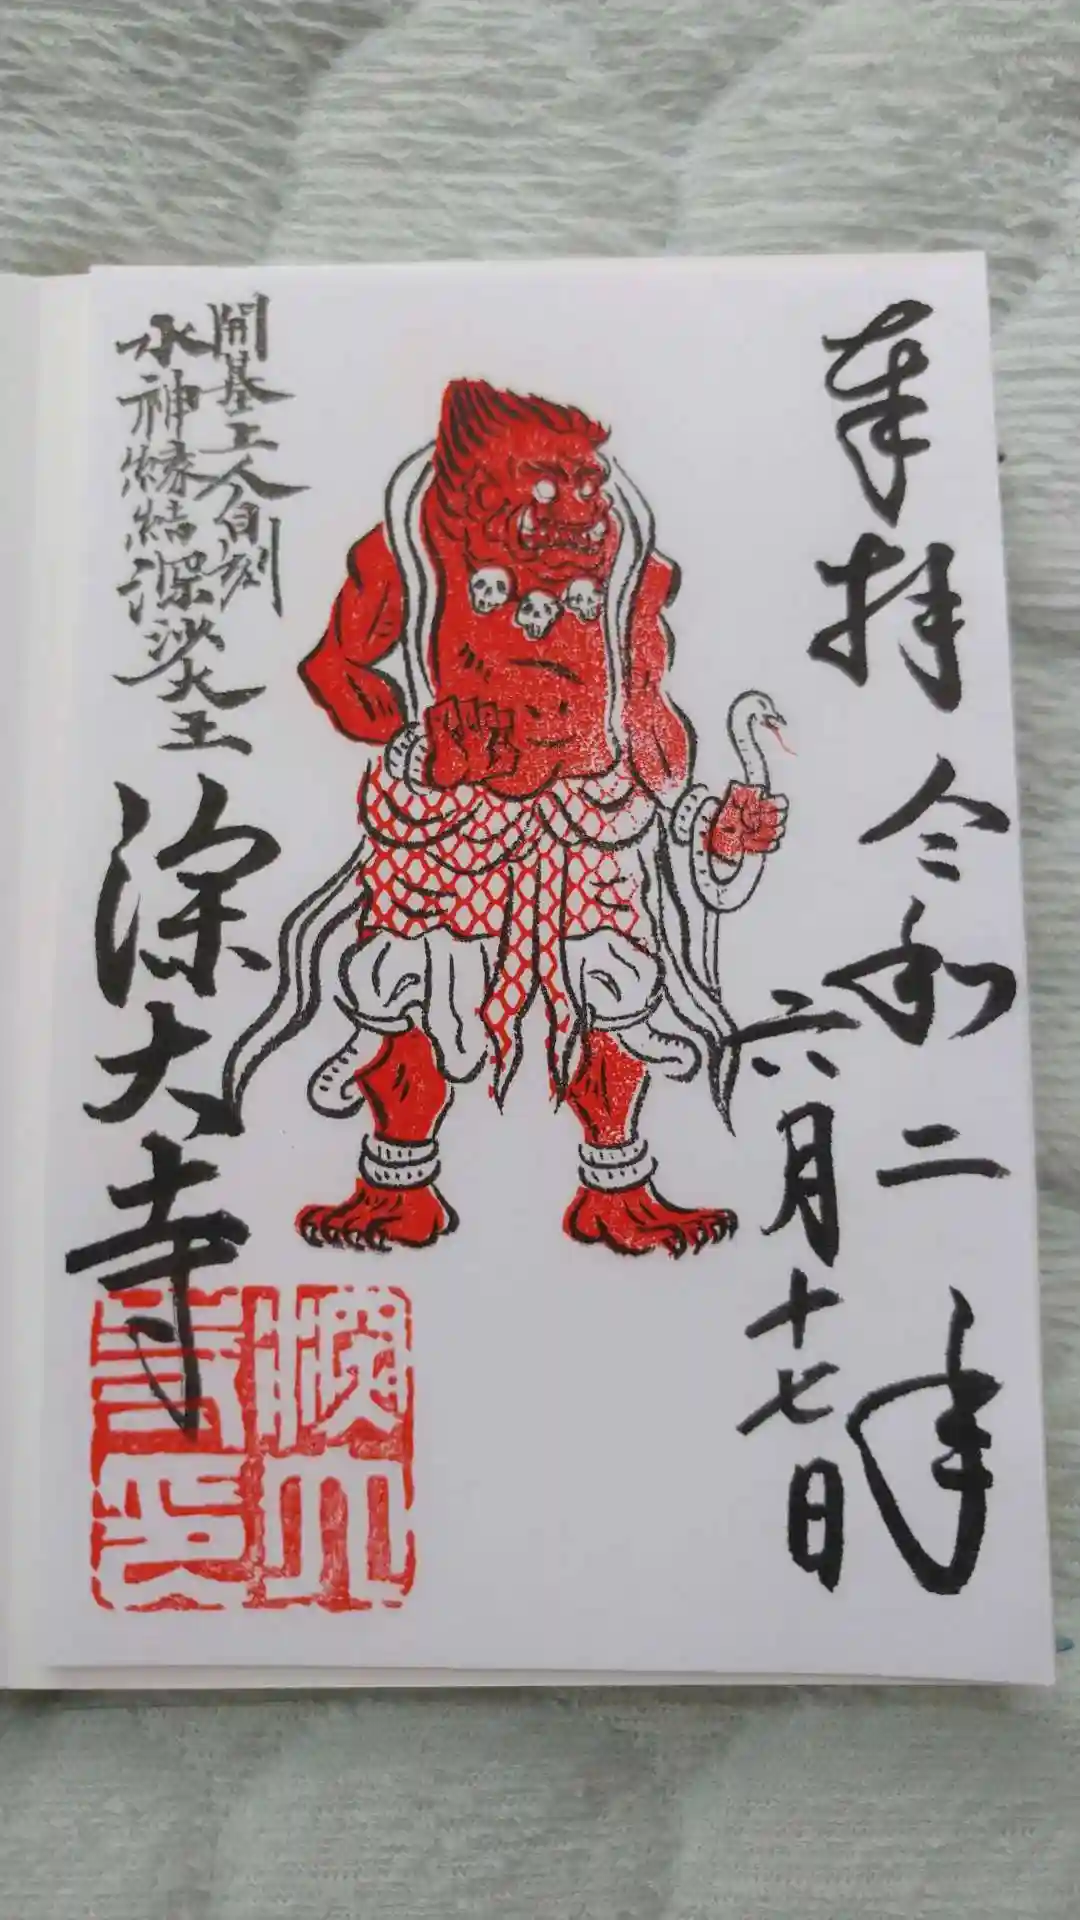 奉拝
令和二年
六月十七日
開基上人自刻
水神縁結深沙大王
深大寺
深大
寺印